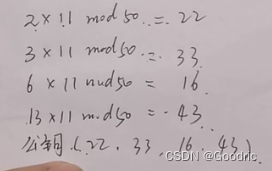 2 × 11 mod 50 = 22
3 × 11 mod 50 = 33
6 × 11 mod 50 = 16
13 × 11 mod 50 = 43
公钥(22. 33. 16. 43)
CSDN @Goodric